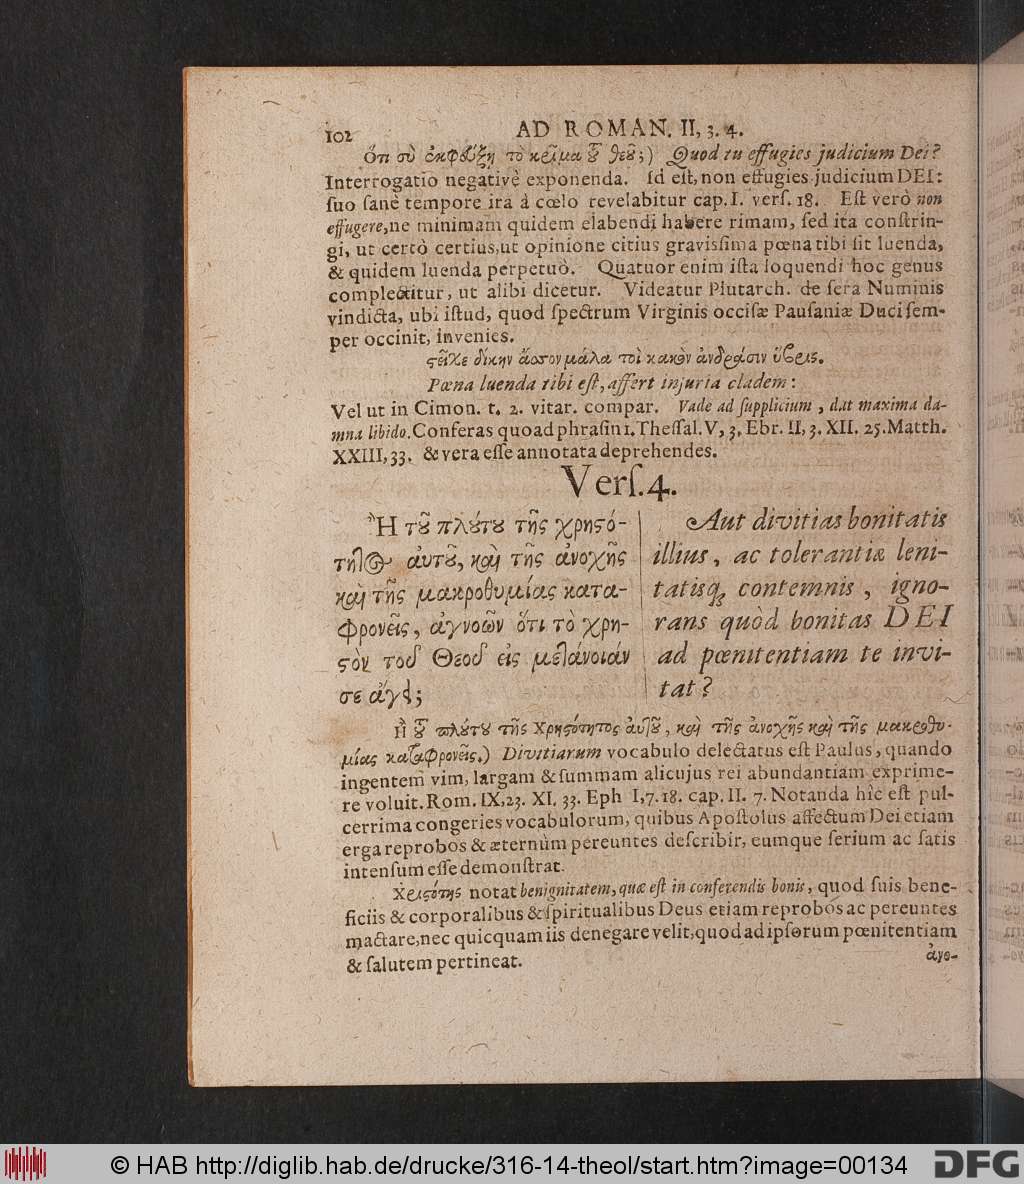 102 AD ROMAN. II, 3. 4.
Ὅτι σὺ ἐκφεύξῃ τὸ κρῖμα τοῦ θεοῦ;) Quod tu effugies judicium Dei?
Interrogatio negativè exponenda. Id eſt, non effugies judicium DEI:
ſuo ſanè tempore ira à cœlo revelabitur cap. I. verſ. 18. Eſt verò non
effugere, ne minimam quidem elabendi habere rimam, ſed ita conſtrin-
gi, ut certò certius, ut opinione citius graviſſima pœna tibi ſit luenda,
& quidem luenda perpetuò. Quatuor enim iſta loquendi hoc genus
complectitur, ut alibi dicetur. Videatur Plutarch. de ſera Numinis
vindicta, ubi iſtud, quod ſpectrum Virginis occiſæ Pauſaniæ Duci ſem-
per occinit, invenies.
ϛεῖχε δίκην ἄσσον μάλα τοὶ κακὸν ἀνδράσιν ὕβρις.
Pœna luenda tibi eſt, affert injuria cladem:
Vel ut in Cimon. t. 2. vitar. compar. Vade ad ſupplicium, dat maxima da-
mna libido. Conferas quoad phraſin 1. Theſſal. V, 3. Ebr. II, 3. XII. 25. Matth.
XXIII, 33. & vera eſſe annotata deprehendes.
Verſ. 4.
Ἢ τοῦ πλούτου τῆς χρηϛό-
τητος αὐτοῦ, καὶ τῆς ἀνοχῆς
καὶ τῆς μακροθυμίας κατα-
φρονεῖς, ἀγνοῶν ὅτι τὸ χρη-
ϛὸν τοῦ Θεοῦ εἰς μετάνοιάν
σε ἄγει;
Aut divitias bonitatis
illius, ac tolerantiæ leni-
tatisq; contemnis, igno-
rans quòd bonitas DEI
ad pœnitentiam te invi-
tat?
Ἢ τοῦ πλούτου τῆς χρηϛότητος αὐτοῦ, καὶ τῆς ἀνοχῆς καὶ τῆς μακροθυ-
μίας καταφρονεῖς.) Divitiarum vocabulo delectatus eſt Paulus, quando
ingentem vim, largam & ſummam alicujus rei abundantiam exprime-
re voluit. Rom. IX, 23. XI. 33. Eph I, 7. 18. cap. II. 7. Notanda hîc eſt pul-
cerrima congeries vocabulorum, quibus Apoſtolus affectum Dei etiam
erga reprobos & æternùm pereuntes deſcribit, eumque ſerium ac ſatis
intenſum eſſe demonſtrat.
Χρηϛότης notat benignitatem, quæ eſt in conferendis bonis, quod ſuis bene-
ficiis & corporalibus & ſpiritualibus Deus etiam reprobos ac pereuntes
mactare, nec quicquam iis denegare velit, quod ad ipſorum pœnitentiam
& ſalutem pertineat.
ἀνο-
© HAB http://diglib.hab.de/drucke/316-14-theol/start.htm?image=00134
DFG